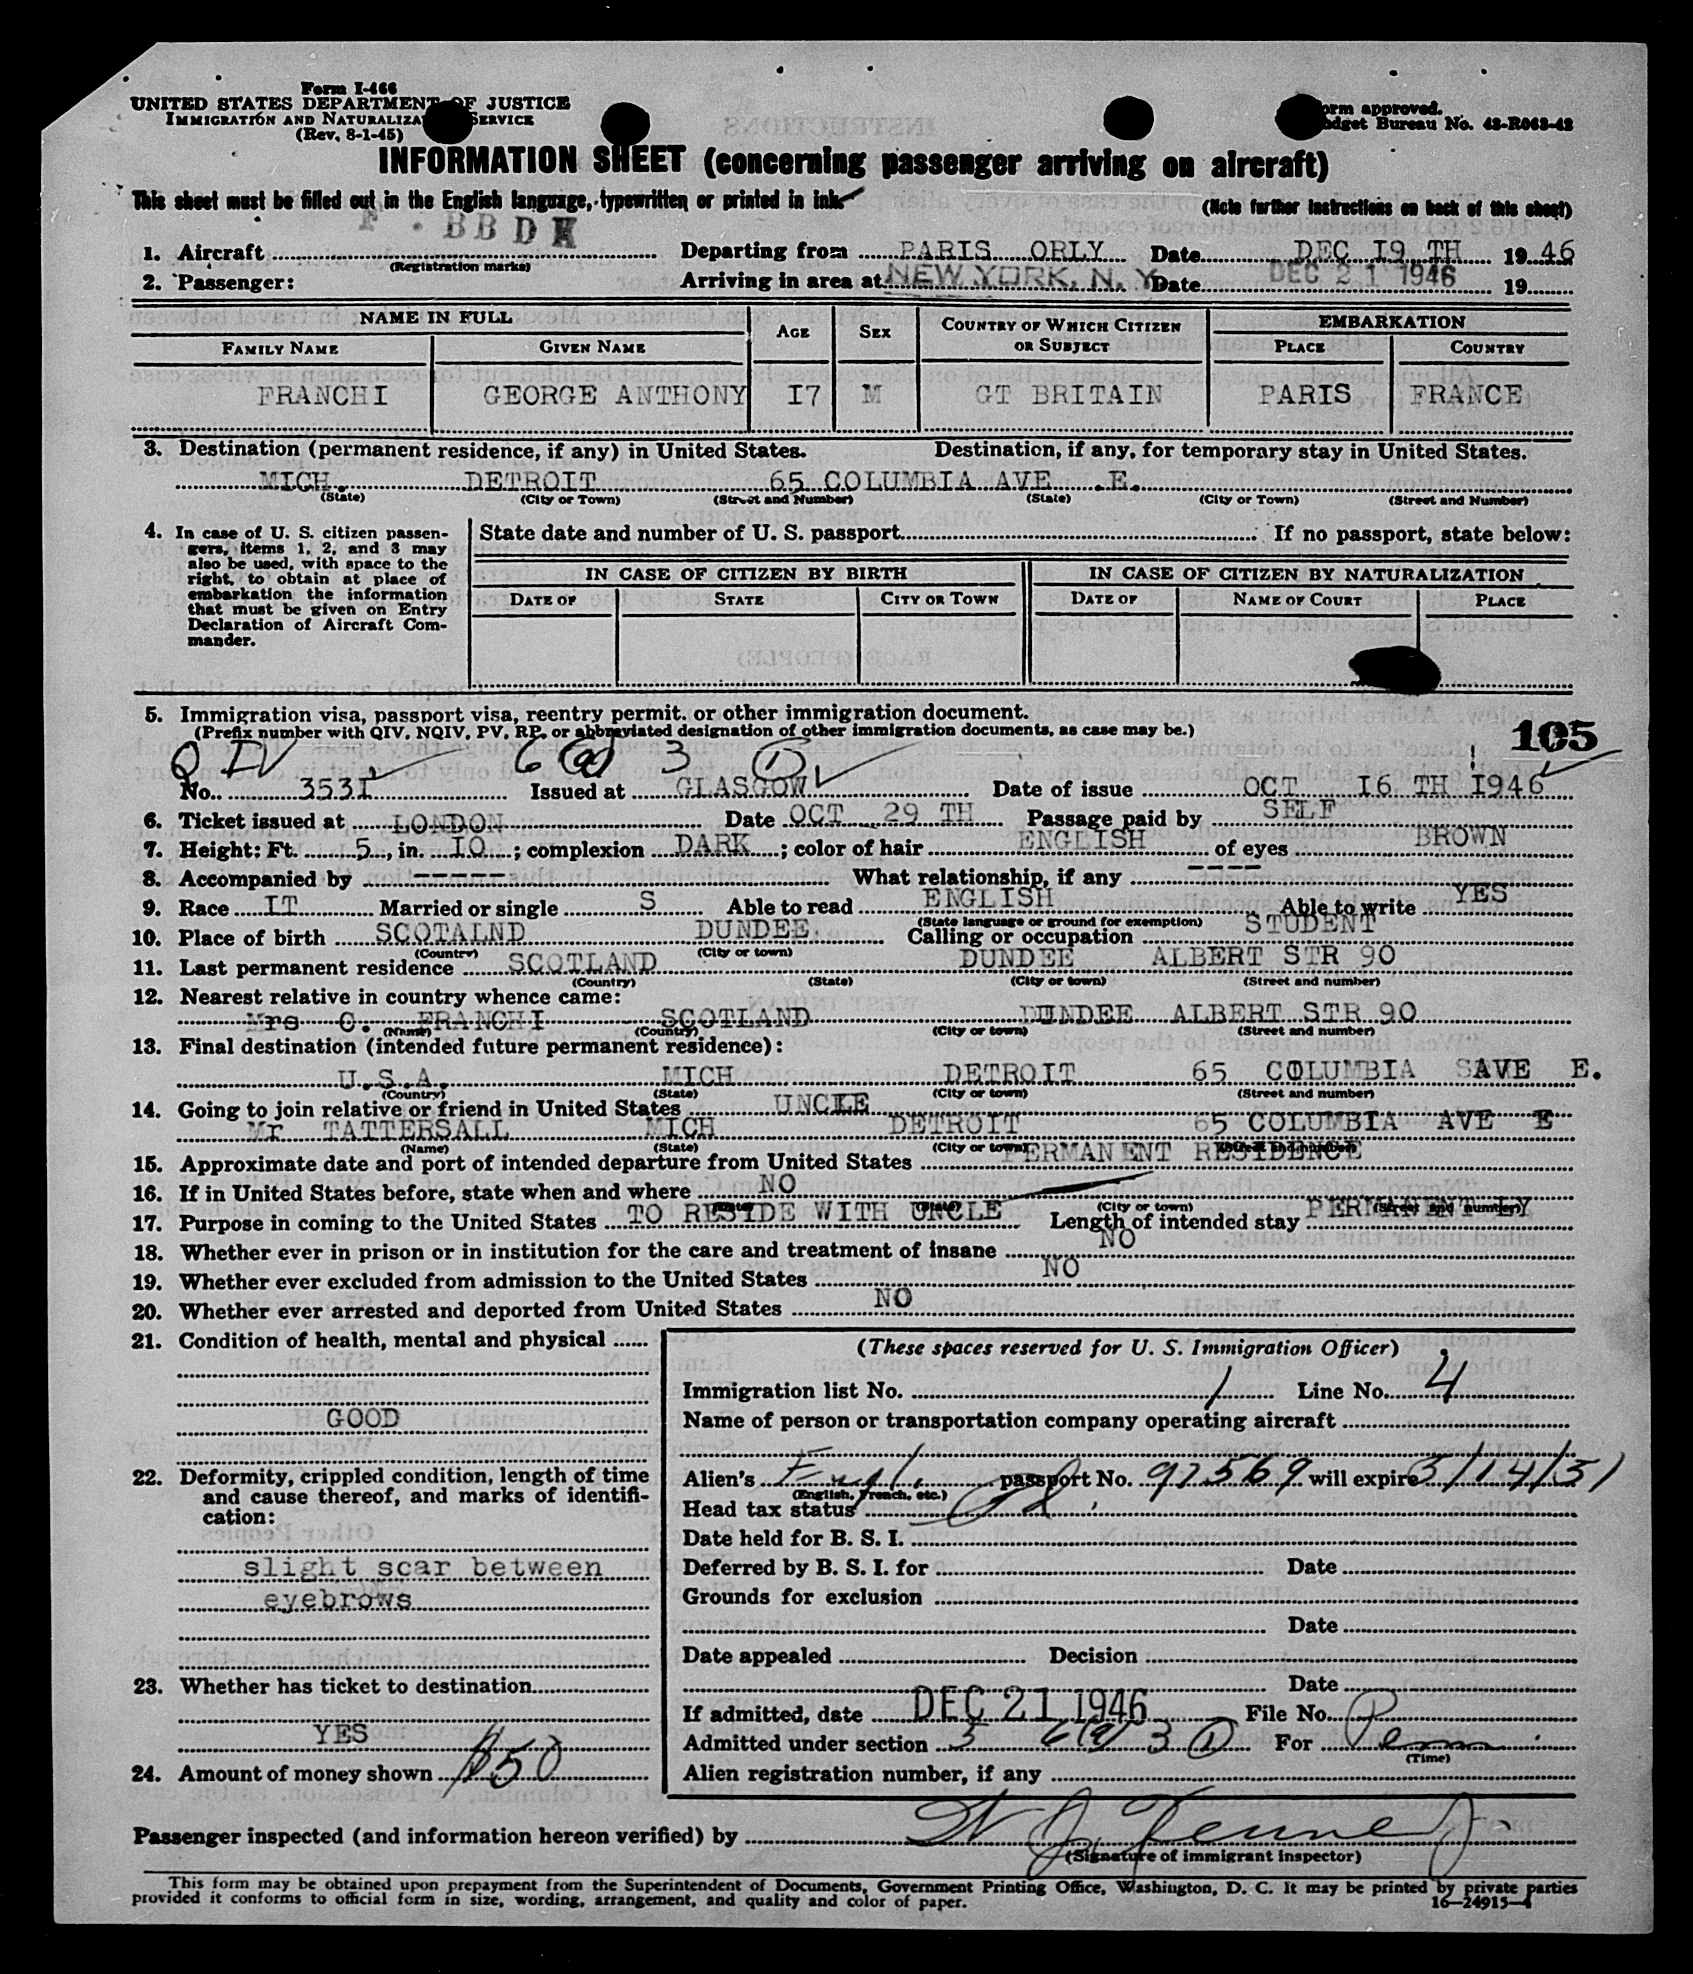 Form I-466
UNITED STATES DEPARTMENT OF JUSTICE
IMMIGRATION AND NATURALIZATION SERVICE
(Rev. 8-1-45)
Form approved.
Budget Bureau No. 43-R063-42
INFORMATION SHEET (concerning passenger arriving on aircraft)
This sheet must be filled out in the English language, typewritten or printed in ink.
(Note further instructions on back of this sheet)
F . BBD
1. Aircraft Departing from PARIS ORLY Date DEC I9 TH 1946
(Registration marks)
2. Passenger: Arriving in area at NEW YORK, N. Y. Date DEC 21 1946 19
NAME IN FULL AGE SEX COUNTRY OF WHICH CITIZEN OR SUBJECT EMBARKATION
FAMILY NAME GIVEN NAME PLACE COUNTRY
FRANCHI GEORGE ANTHONY I7 M GT BRITAIN PARIS FRANCE
3. Destination (permanent residence, if any) in United States. Destination, if any, for temporary stay in United States.
MICH. DETROIT 65 COLUMBIA AVE .E.
(State) (City or Town) (Street and Number) (State) (City or Town) (Street and Number)
4. In case of U. S. citizen passen-
gers, items 1, 2, and 3 may
also be used, with space to the
right, to obtain at place of
embarkation the information
that must be given on Entry
Declaration of Aircraft Com-
mander.
State date and number of U. S. passport If no passport, state below:
IN CASE OF CITIZEN BY BIRTH IN CASE OF CITIZEN BY NATURALIZATION
DATE OF STATE CITY OR TOWN DATE OF NAME OF COURT PLACE
5. Immigration visa, passport visa, reentry permit, or other immigration document.
(Prefix number with QIV, NQIV, PV, RP, or abbreviated designation of other immigration documents, as case may be.)
105
QIV 6(a) 3 (1)
No. 353I Issued at GLASGOW Date of issue OCT I6 TH I946
6. Ticket issued at LONDON Date OCT 29 TH Passage paid by SELF
7. Height: Ft. 5, in. IO; complexion DARK; color of hair ENGLISH of eyes BROWN
8. Accompanied by ----- What relationship, if any ----
9. Race IT Married or single S Able to read ENGLISH Able to write YES
(State language or ground for exemption)
10. Place of birth SCOTALND DUNDEE. Calling or occupation STUDENT
(Country) (City or town)
11. Last permanent residence SCOTLAND DUNDEE ALBERT STR 90
(Country) (State) (City or town) (Street and number)
12. Nearest relative in country whence came:
Mrs C. FRANCHI SCOTLAND DUNDEE ALBERT STR 90
(Name) (Country) (City or town) (Street and number)
13. Final destination (intended future permanent residence):
U.S.A. MICH DETROIT 65 COLUMBIA SAVE E.
(Country) (State) (City or town) (Street and number)
14. Going to join relative or friend in United States UNCLE
Mr TATTERSALL MICH DETROIT 65 COLUMBIA AVE E
(Name) (State) (City or town) (Street and number)
15. Approximate date and port of intended departure from United States PERMANENT RESIDENCE
16. If in United States before, state when and where NO
(City or town) (Street and number)
17. Purpose in coming to the United States TO RESIDE WITH UNCLE Length of intended stay PERMANENTLY
18. Whether ever in prison or in institution for the care and treatment of insane NO
19. Whether ever excluded from admission to the United States NO
20. Whether ever arrested and deported from United States NO
21. Condition of health, mental and physical
GOOD
22. Deformity, crippled condition, length of time
and cause thereof, and marks of identifi-
cation:
slight scar between
eyebrows
23. Whether has ticket to destination
YES
24. Amount of money shown $50
(These spaces reserved for U. S. Immigration Officer)
Immigration list No. 1 Line No. 4
Name of person or transportation company operating aircraft
Alien's Engl. passport No. 97569 will expire 5/14/51
(English, French, etc.)
Head tax status
Date held for B. S. I.
Deferred by B. S. I. for Date
Grounds for exclusion
Date
Date appealed Decision
Date
If admitted, date DEC 21 1946 File No.
Admitted under section 3 6(a) 3 (1) For Perm
(Time)
Alien registration number, if any
Passenger inspected (and information hereon verified) by
(Signature of immigrant inspector)
This form may be obtained upon prepayment from the Superintendent of Documents, Government Printing Office, Washington, D. C. It may be printed by private parties
provided it conforms to official form in size, wording, arrangement, and quality and color of paper. 16—24915-1